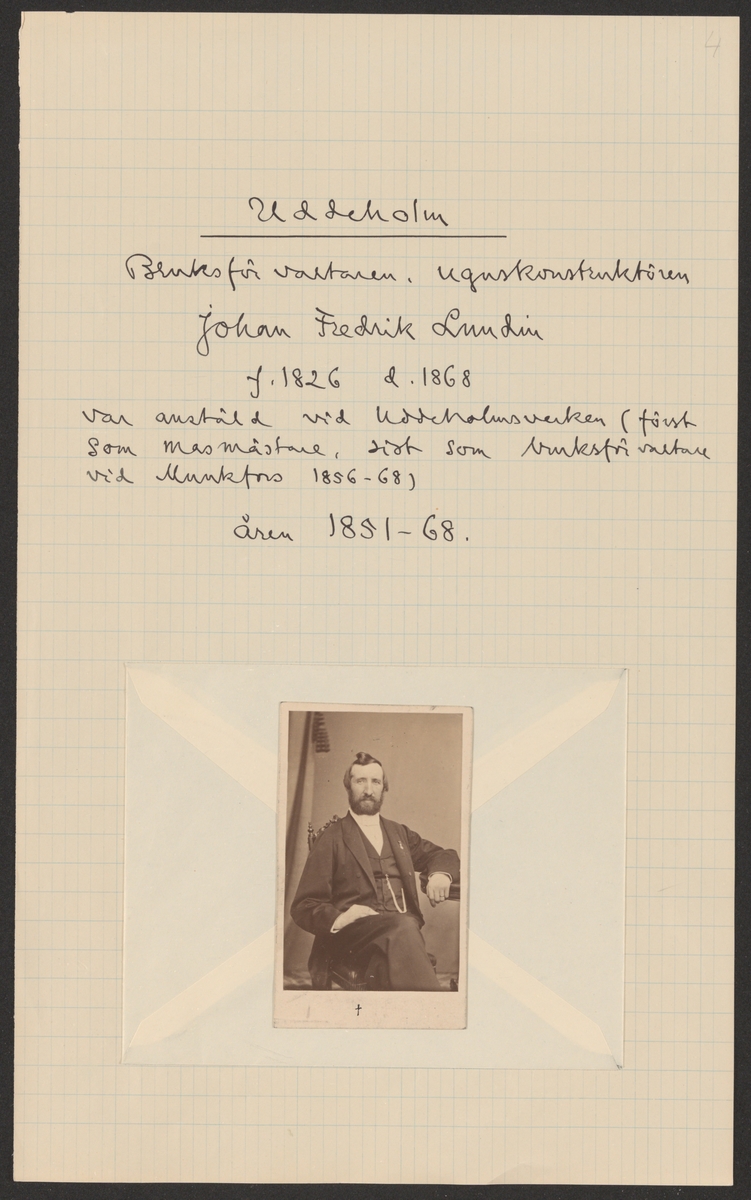 4
Uddeholm
Bruksförvaltaren, ugnskonstruktören
Johan Fredrik Lundin
f. 1826 d. 1868
var anställd vid Uddeholmsverken (först
som masmästare, sist som bruksförvaltare
vid Munkfors 1856-68)
åren 1851-68.
†